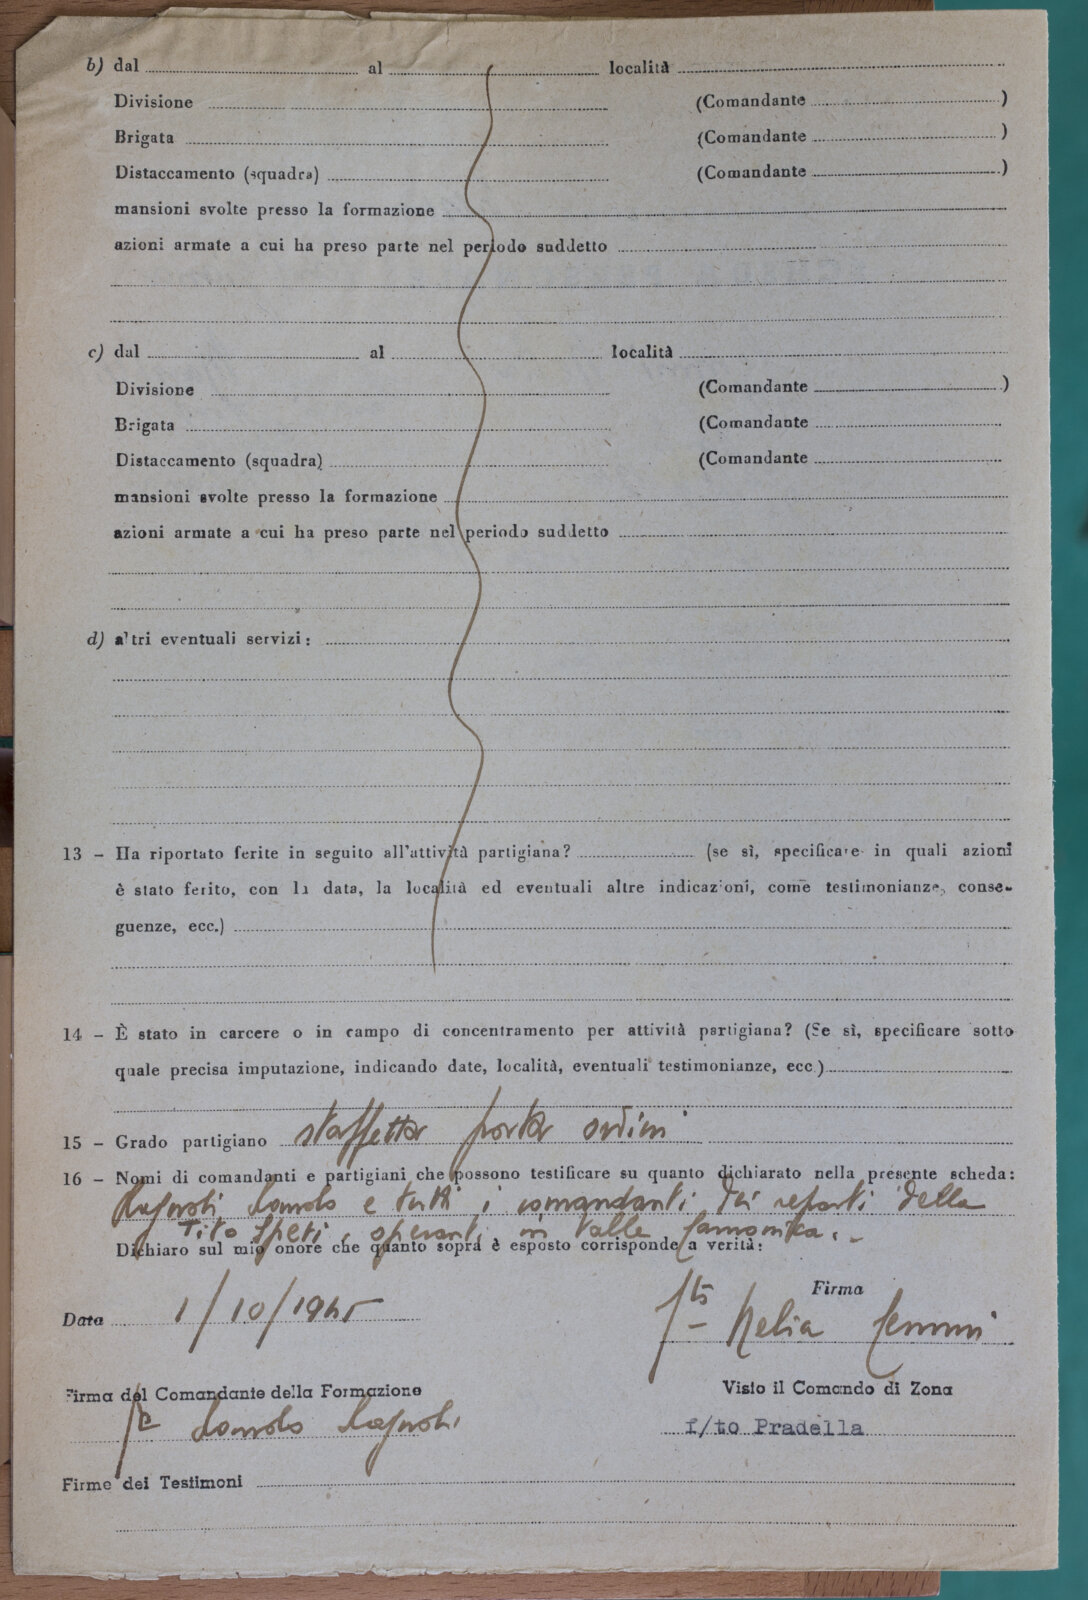 b) dal ........ al ........ località ........
Divisione ........ (Comandante ........)
Brigata ........ (Comandante ........)
Distaccamento (squadra) ........ (Comandante ........)
mansioni svolte presso la formazione ........
azioni armate a cui ha preso parte nel periodo suddetto ........
c) dal ........ al ........ località ........
Divisione ........ (Comandante ........)
Brigata ........ (Comandante ........
Distaccamento (squadra) ........ (Comandante ........
mansioni svolte presso la formazione ........
azioni armate a cui ha preso parte nel periodo suddetto ........
d) altri eventuali servizi: ........
13 – Ha riportato ferite in seguito all'attività partigiana? ........ (se sì, specificare in quali azioni
è stato ferito, con la data, la località ed eventuali altre indicazioni, come testimonianze, conse-
guenze, ecc.) ........
14 – È stato in carcere o in campo di concentramento per attività partigiana? (Se sì, specificare sotto
quale precisa imputazione, indicando date, località, eventuali testimonianze, ecc.) ........
15 – Grado partigiano staffetta porta ordini
16 – Nomi di comandanti e partigiani che possono testificare su quanto dichiarato nella presente scheda:
Ragnoli Romolo e tutti i comandanti dei reparti della
Tito Speri, operanti in Valle Camonica.
Dichiaro sul mio onore che quanto sopra è esposto corrisponde a verità:
Firma
Data 1/10/1945 f/to Nelia
Firma del Comandante della Formazione Visto il Comando di Zona
Romolo Ragnoli f/to Pradella
Firme dei Testimoni ........